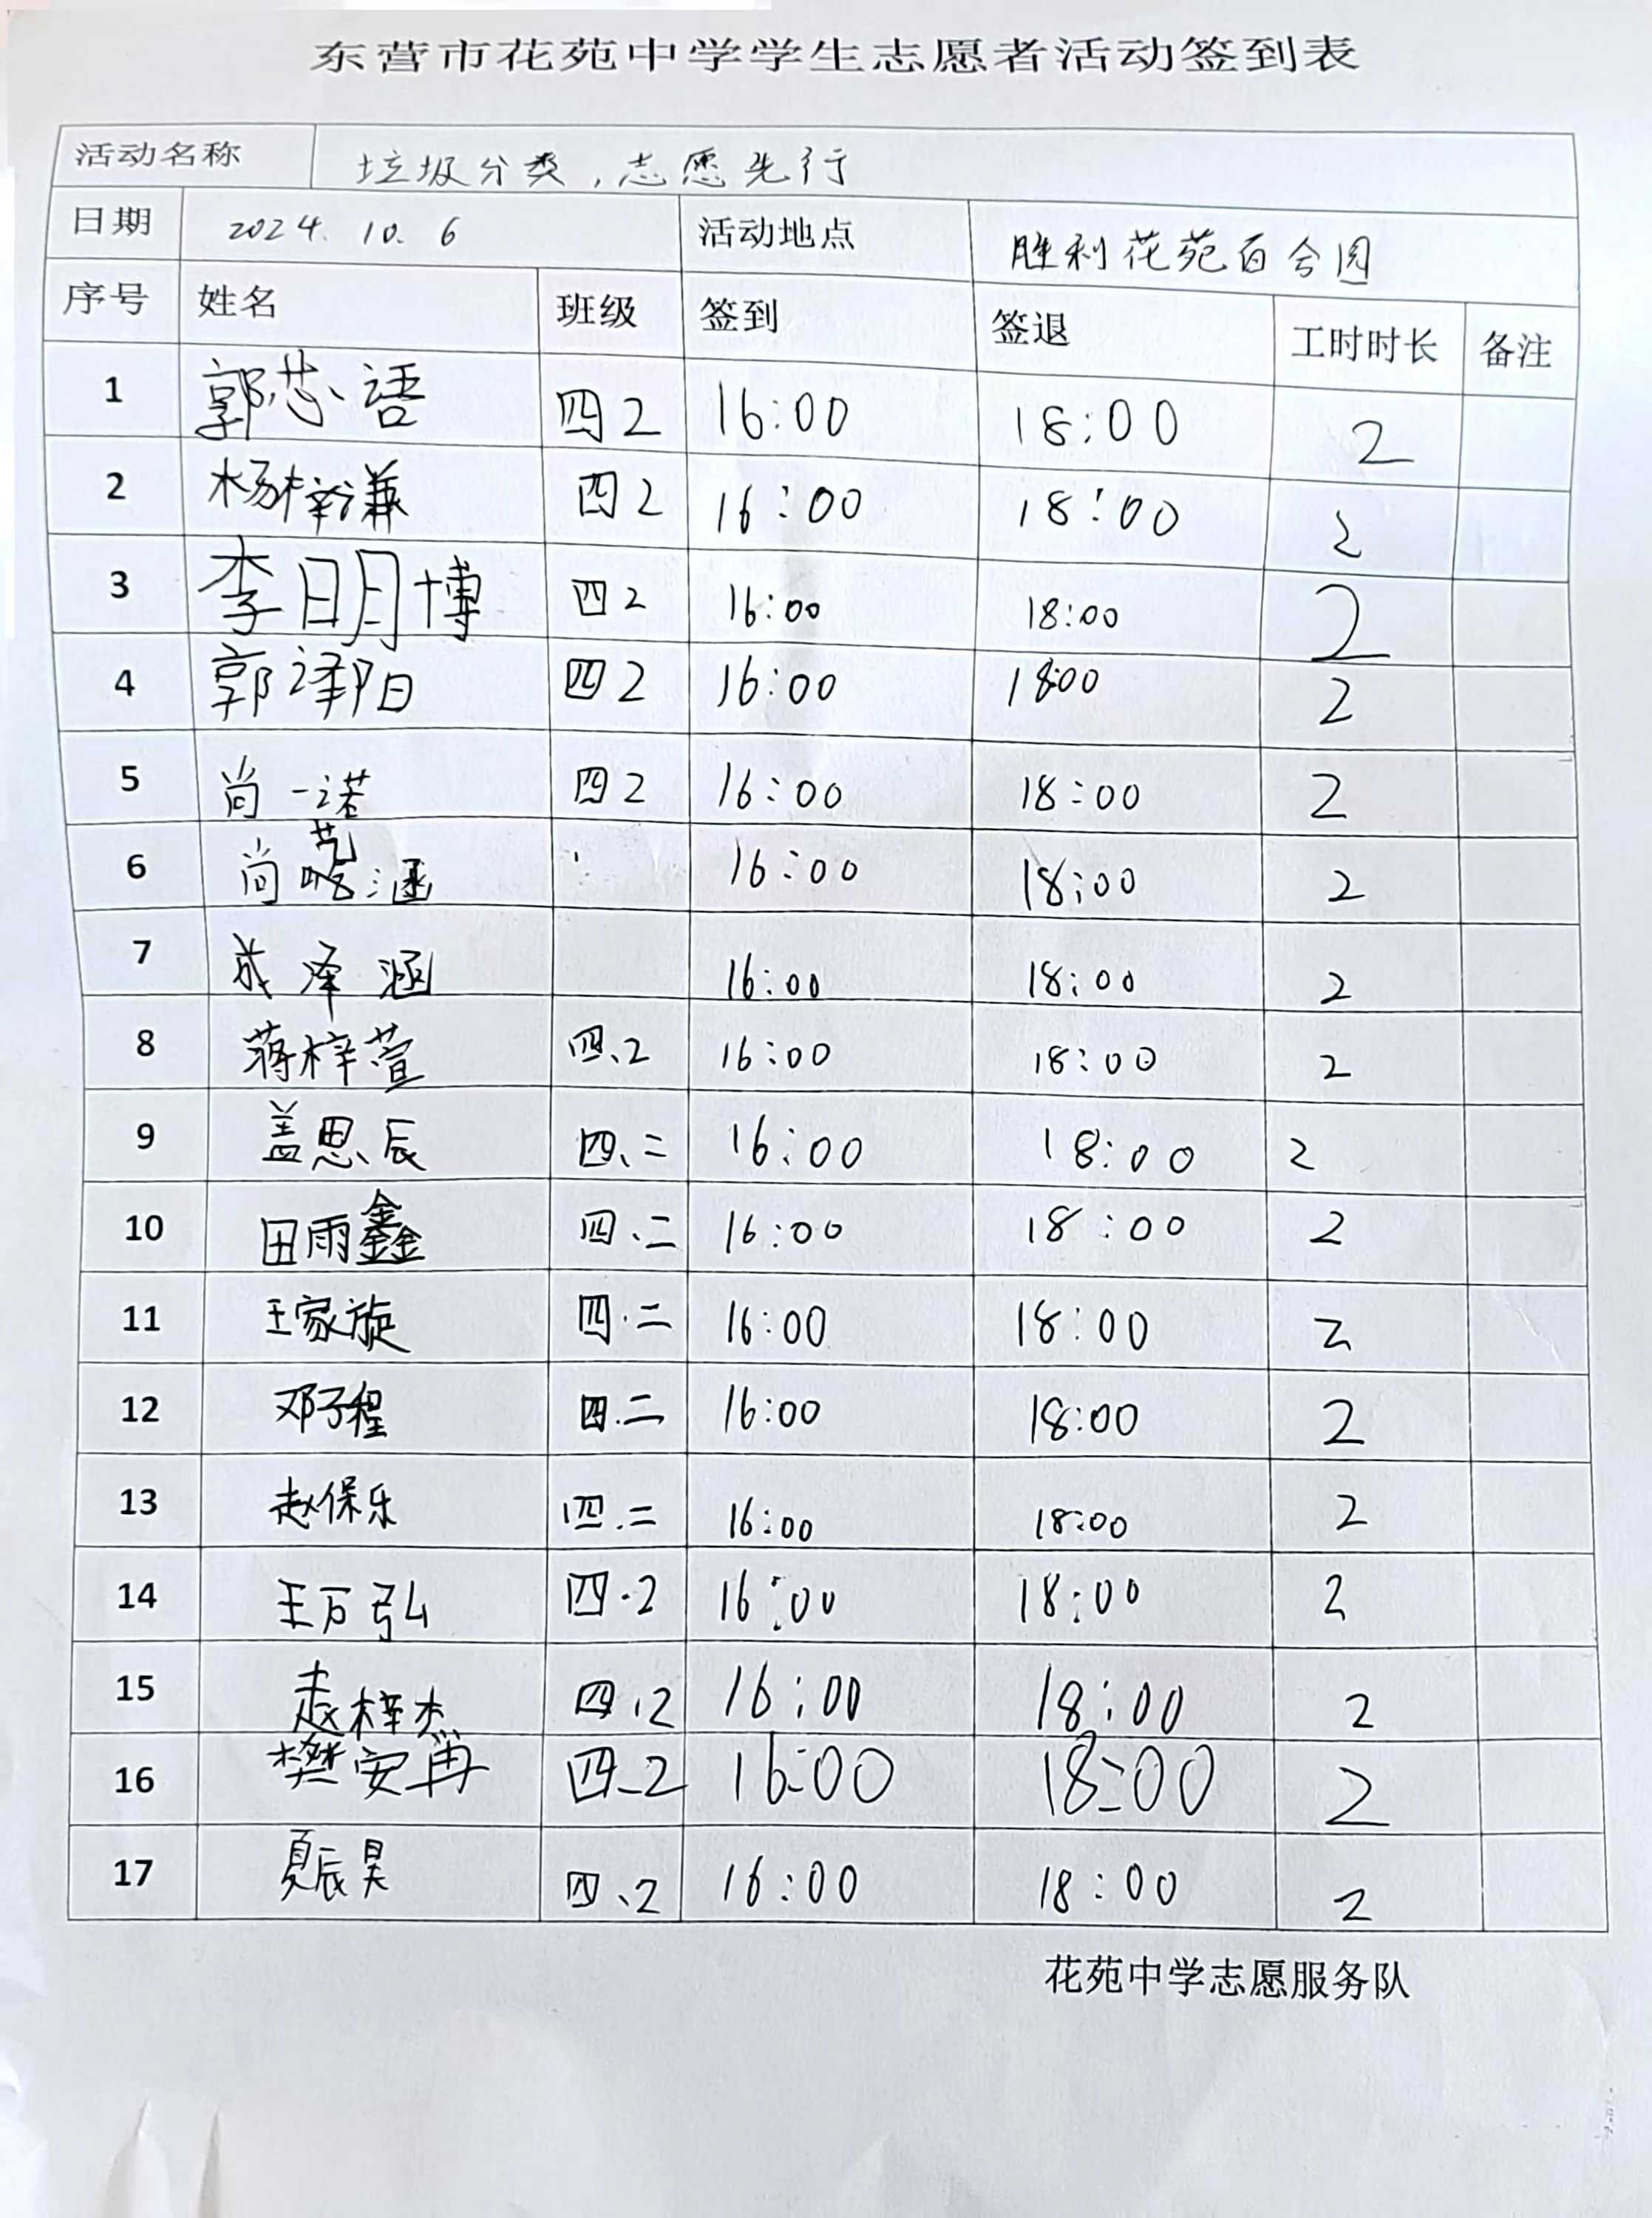 东营市花苑中学学生志愿者活动签到表
活动名称 垃圾分类，志愿先行
日期 2024.10.6 活动地点 胜利花苑百合园
序号 姓名 班级 签到 签退 工时时长 备注
1 郭芯语 四2 16:00 18:00 2
2 杨梓谦 四2 16:00 18:00 2
3 李明博 四2 16:00 18:00 2
4 郭泽阳 四2 16:00 18:00 2
5 尚一诺 四2 16:00 18:00 2
6 尚艺涵 16:00 18:00 2
7 成泽涵 16:00 18:00 2
8 蒋梓萱 四.2 16:00 18:00 2
9 盖思辰 四.二 16:00 18:00 2
10 田雨鑫 四.二 16:00 18:00 2
11 王家旋 四.二 16:00 18:00 2
12 邓子程 四.二 16:00 18:00 2
13 赵保乐 四.二 16:00 18:00 2
14 王万弘 四.2 16:00 18:00 2
15 赵梓杰 四.2 16:00 18:00 2
16 樊安再 四-2 16:00 18:00 2
17 夏辰昊 四、2 16:00 18:00 2
花苑中学志愿服务队